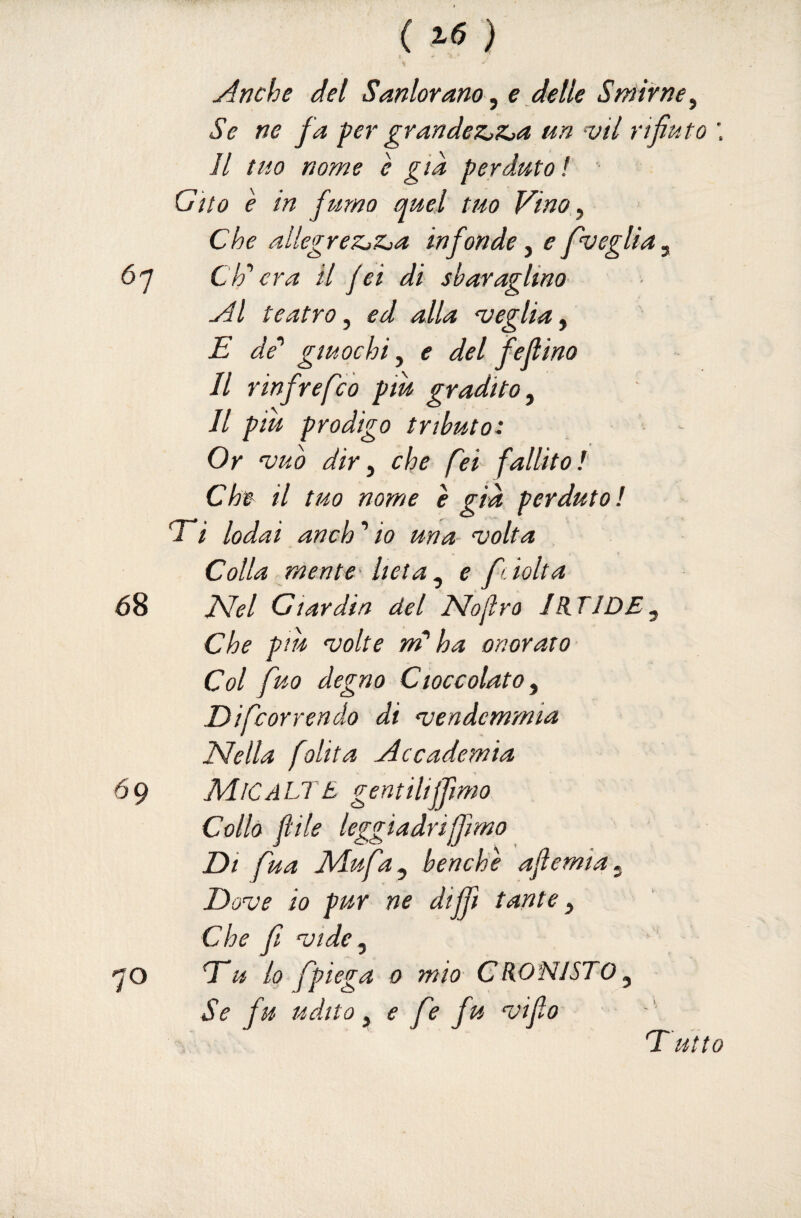 ( 26 )
Anche del Sanlorano, e delle Smirne,
Se ne fa per grandezza un vil rifiuto:
Il tuo nome è già perduto!
Gito è in fumo quel tuo Vino,
Che allegrezza infonde, e ſveglia,
67 Ch' era il ſei di sbaraglino
Al teatro, ed alla veglia,
E de' giuochi, e del feſtino
Il rinfreſco più gradito,
Il più prodigo tributo:
Or vuò dir, che ſei fallito!
Che il tuo nome è già perduto!
Ti lodai anch' io una volta
Colla mente lieta, e ſciolta
68 Nel Giardin del Noſtro IRTIDE,
Che più volte m' ha onorato
Col ſuo degno Cioccolato,
Diſcorrendo di vendemmia
Nella ſolita Accademia
69 MICALTE gentiliſſimo
Collo ſtile leggiadriſſimo
Di ſua Muſa, benchè aſtemia,
Dove io pur ne diſſi tante,
Che ſi vide,
70 Tu lo ſpiega o mio CRONISTO,
Se fu udito, e ſe fu viſto
Tutto